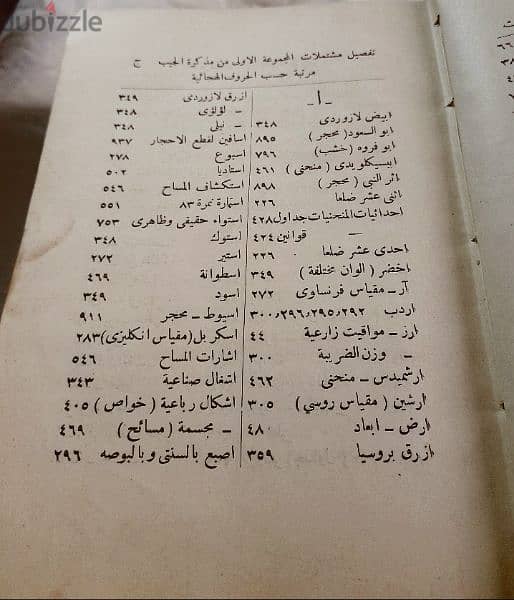 dubizzle
تفصيل مشتملات المجموعة الاولى من مذكرة الجيب ح
مرتبة حسب الحروف الهجائية
ـ ا ـ
ابيض لازوردى ٣٤٨
ابو السعود (محجر) ٨٩٥
ابو فروه (خشب) ٧٩٦
ابيسيكلويدى (منحنى) ٤٦١
اثر النبي (محجر) ٨٩٨
اثنى عشر ضلعا ٢٢٦
احداثيات المنحنيات جداول ٤٢٨
— قوانين ٤٢٤
احدى عشر ضلعا ٢٢٦
اخضر (الوان مختلفة) ٣٤٩
آر ـ مقياس فرنساوى ٢٧٢
اردب ٢٩٢ر٢٩٥ر٢٩٦ر٣٠٠
ارز ـ مواقيت زارعية ٤٤
ـ وزن الضريبة ٣٠٠
ارشميدس ـ منحنى ٤٦٢
ارشين (مقياس روسي) ٣٠٥
ارض ـ ابعاد ٤٨٠
ازرق بروسيا ٣٥٩
ازرق لازوردى ٣٤٩
ـ لؤلؤى ٣٤٨
ـ نيلى ٣٤٨
اسافين لقطع الاحجار ٩٣٧
اسبوع ٢٧٨
استاديا ٥٠٢
استكشاف المساح ٥٤٦
استمارة نمرة ٨٣ ٥٥١
استواء حقيقى وظاهرى ٧٥٣
استوك ٣٤٨
استير ٢٧٢
اسطوانة ٤٦٩
اسود ٣٤٩
اسيوط ـ محجر ٩١١
اسكر بل (مقياس انكليزى) ٢٨٣
اشارات المساح ٥٤٦
اشغال صناعية ٣٤٣
اشكال رباعية (خواص) ٤٠٥
ـ مجسمة (مسائح) ٤٦٩
اصبع بالسنتى وبالبوصه ٢٩٦